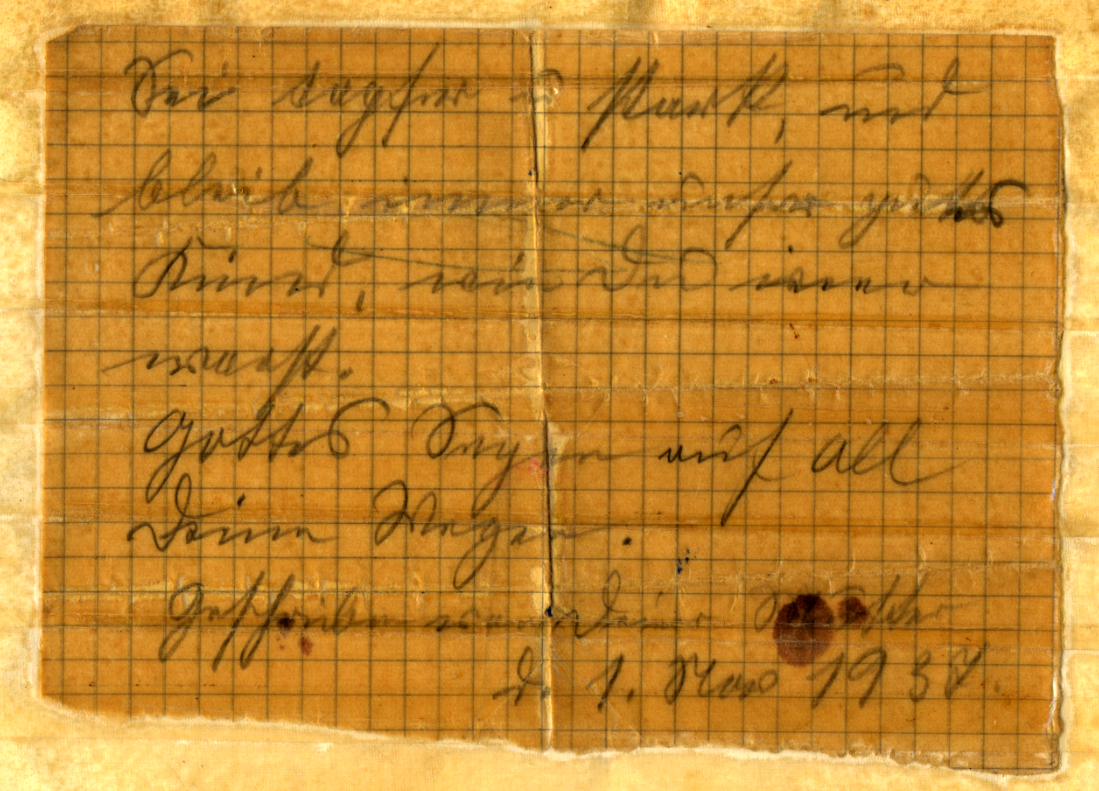 Sei tapfer u stark, und
bleib immer unser gutes
Kind, wie Du immer
warst.
Gottes Segen auf all
Deine Wegen.
Geschrieben von Deiner Mutter
d. 1. Nov 1938.